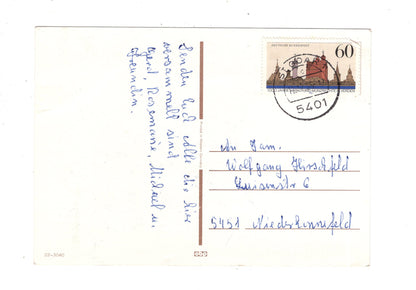 Senden Euch Alle die hier
versammelt sind
Gerd, Rosemarie, Michael u.
Freundin.
DEUTSCHE BUNDESPOST
60
5401
An Fam.
Wolfgang Hirschfeld
Luisenstr 6
5451 Niederhonnefeld